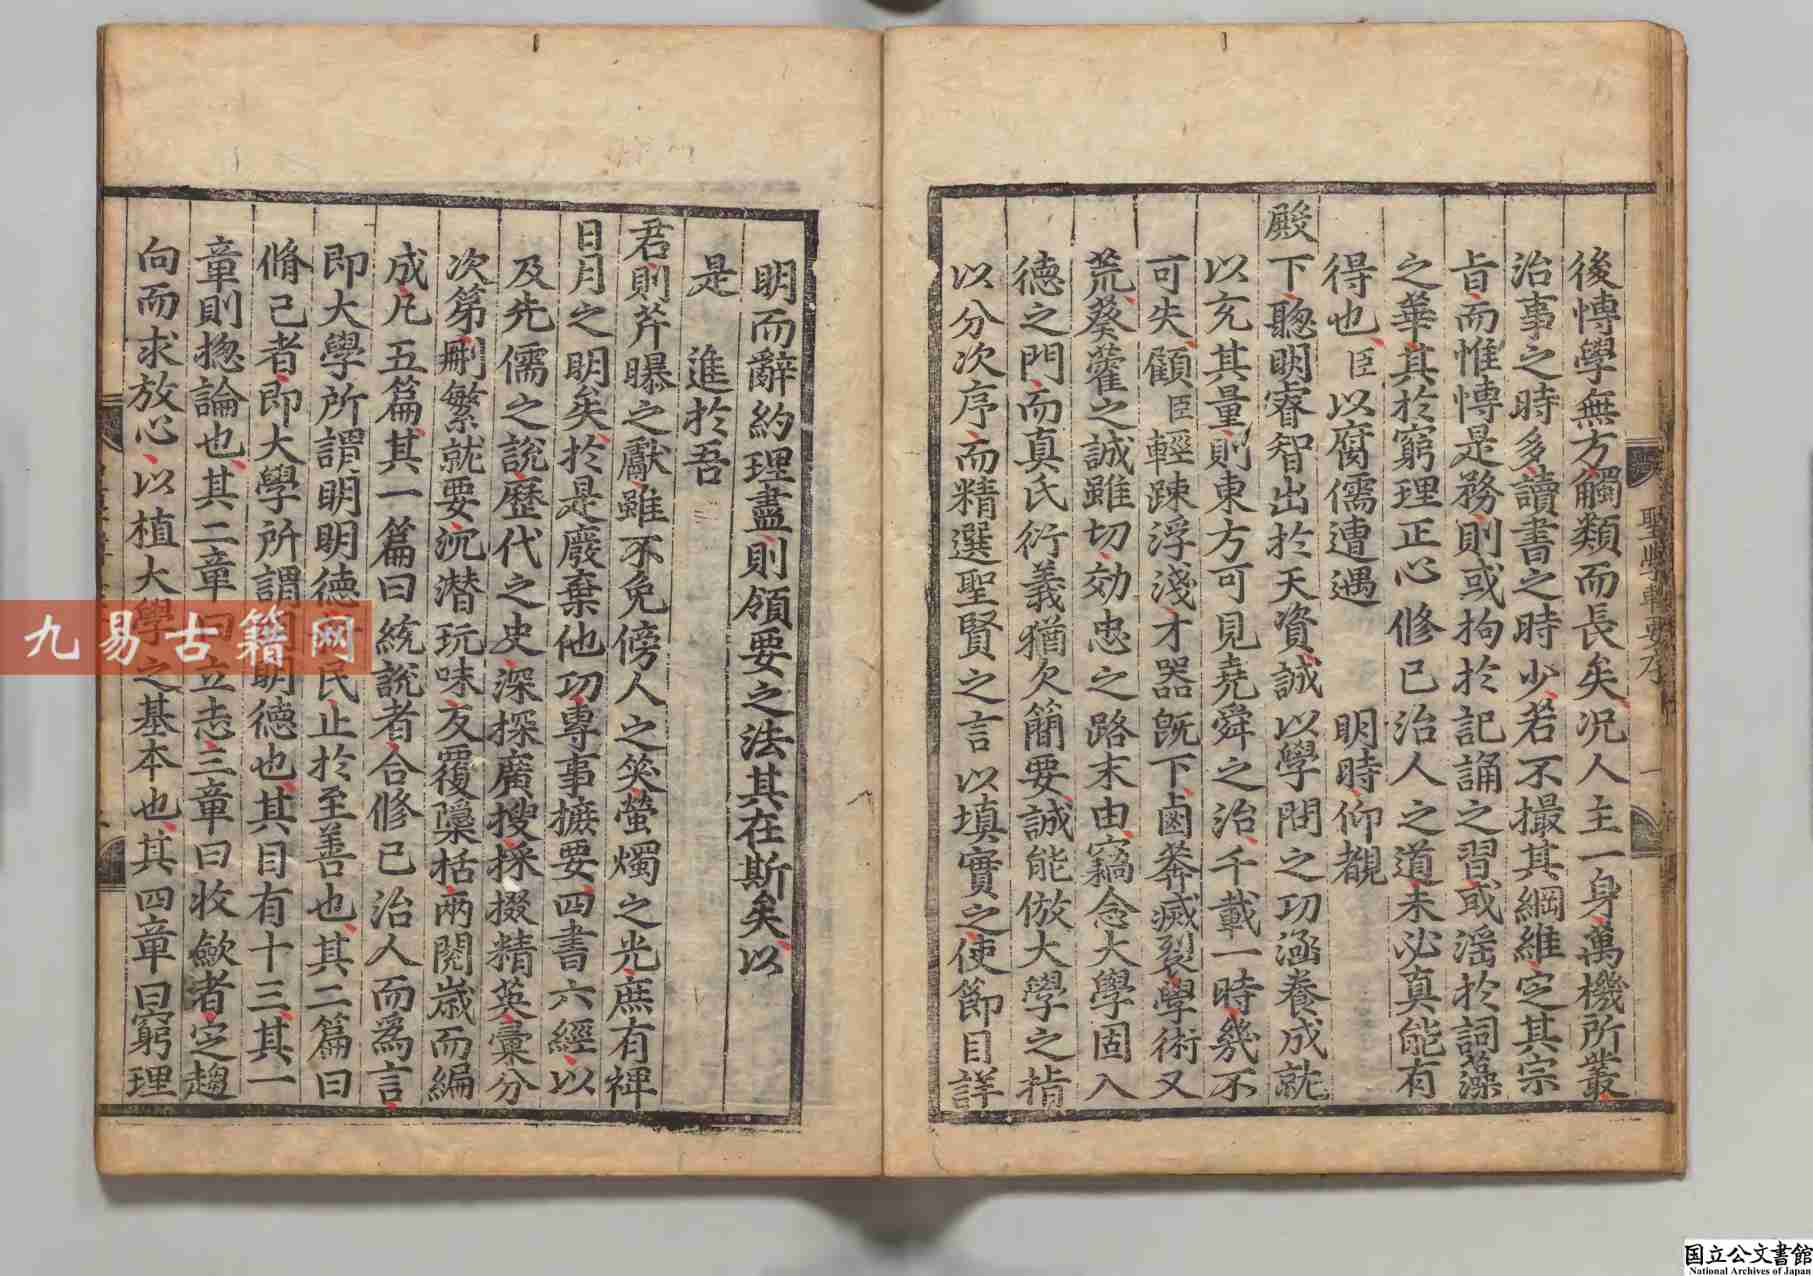 後博學無方觸類而長矣況人主一身萬機所叢
治事之時多讀書之時少若不撮其綱維定其宗
旨而惟博是務則或拘於記誦之習或淫於詞藻
之華其於窮理正心修己治人之道未必真能有
得也臣以腐儒遭遇 明時仰覩
殿下聰明睿智出於天資誠以學問之功涵養成就
以充其量則東方可見堯舜之治千載一時幾不
可失顧臣輕踈浮淺才器旣下鹵莽滅裂學術又
荒葵藿之誠雖切効忠之路末由竊念大學固入
德之門而真氏衍義猶欠簡要誠能倣大學之指
以分次序而精選聖賢之言以填實之使節目詳
聖學輯要序 一
明而辭約理盡則領要之法其在斯矣以
是 進於吾
君則芹曝之獻雖不免傍人之笑螢燭之光庶有裨
日月之明矣於是廢棄他功專事摭要四書六經以
及先儒之說歷代之史深探廣搜採掇精英彙分
次第刪繁就要沉潛玩味反覆檃栝兩閱歲而編
成凡五篇其一篇曰統說者合修己治人而爲言
即大學所謂明明德民止於至善也其二篇曰
脩己者即大學所謂明明德也其目有十三其一
章則揔論也其二章曰立志三章曰收斂者定趨
向而求放心以植大學之基本也其四章曰窮理
九易古籍网
国立公文書館
National Archives of Japan